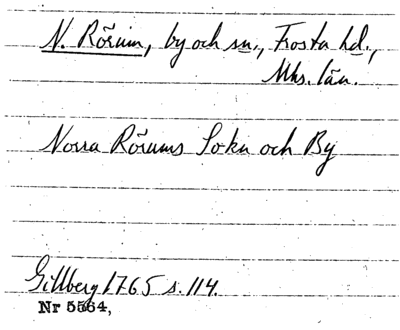 N. Rörum, by och sn., Frosta hd.,
Mhs. län.
Norra Rörums Sokn och By
Gillberg 1765 s. 114.
Nr 5564,